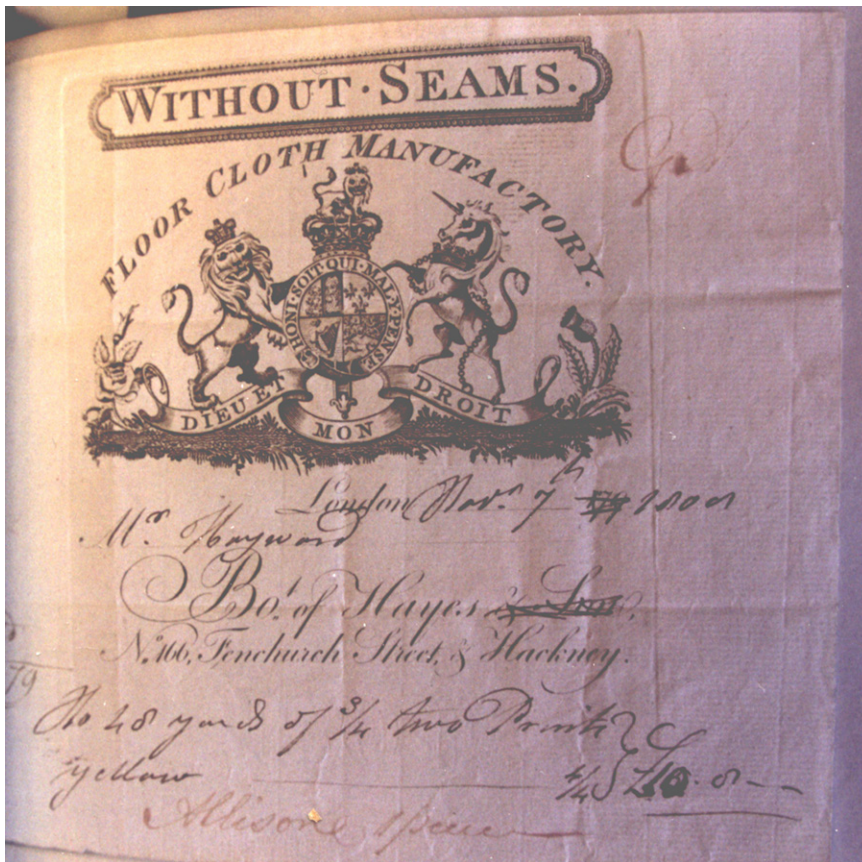 WITHOUT · SEAMS.
FLOOR CLOTH MANUFACTORY.
HONI · SOIT QUI · MAL · Y · PENSE
DIEU ET MON DROIT
London Novr 7th
Mr Hayward
Bot. of Hayes & Son,
No. 166, Fenchurch Street, & Hackney.
To 48 yards of 3/4 two Prints
yellow 4/4 £10. 8 - -